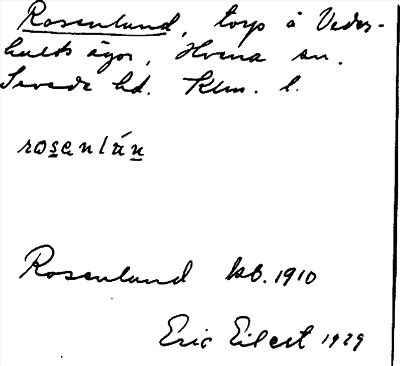 Rosenlund, torp å Veder-
hults ägor, Hvena sn.
Sevede hd. Klm. l.
rosenlún
Rosenlund kb. 1910
Eric Eilert 1929